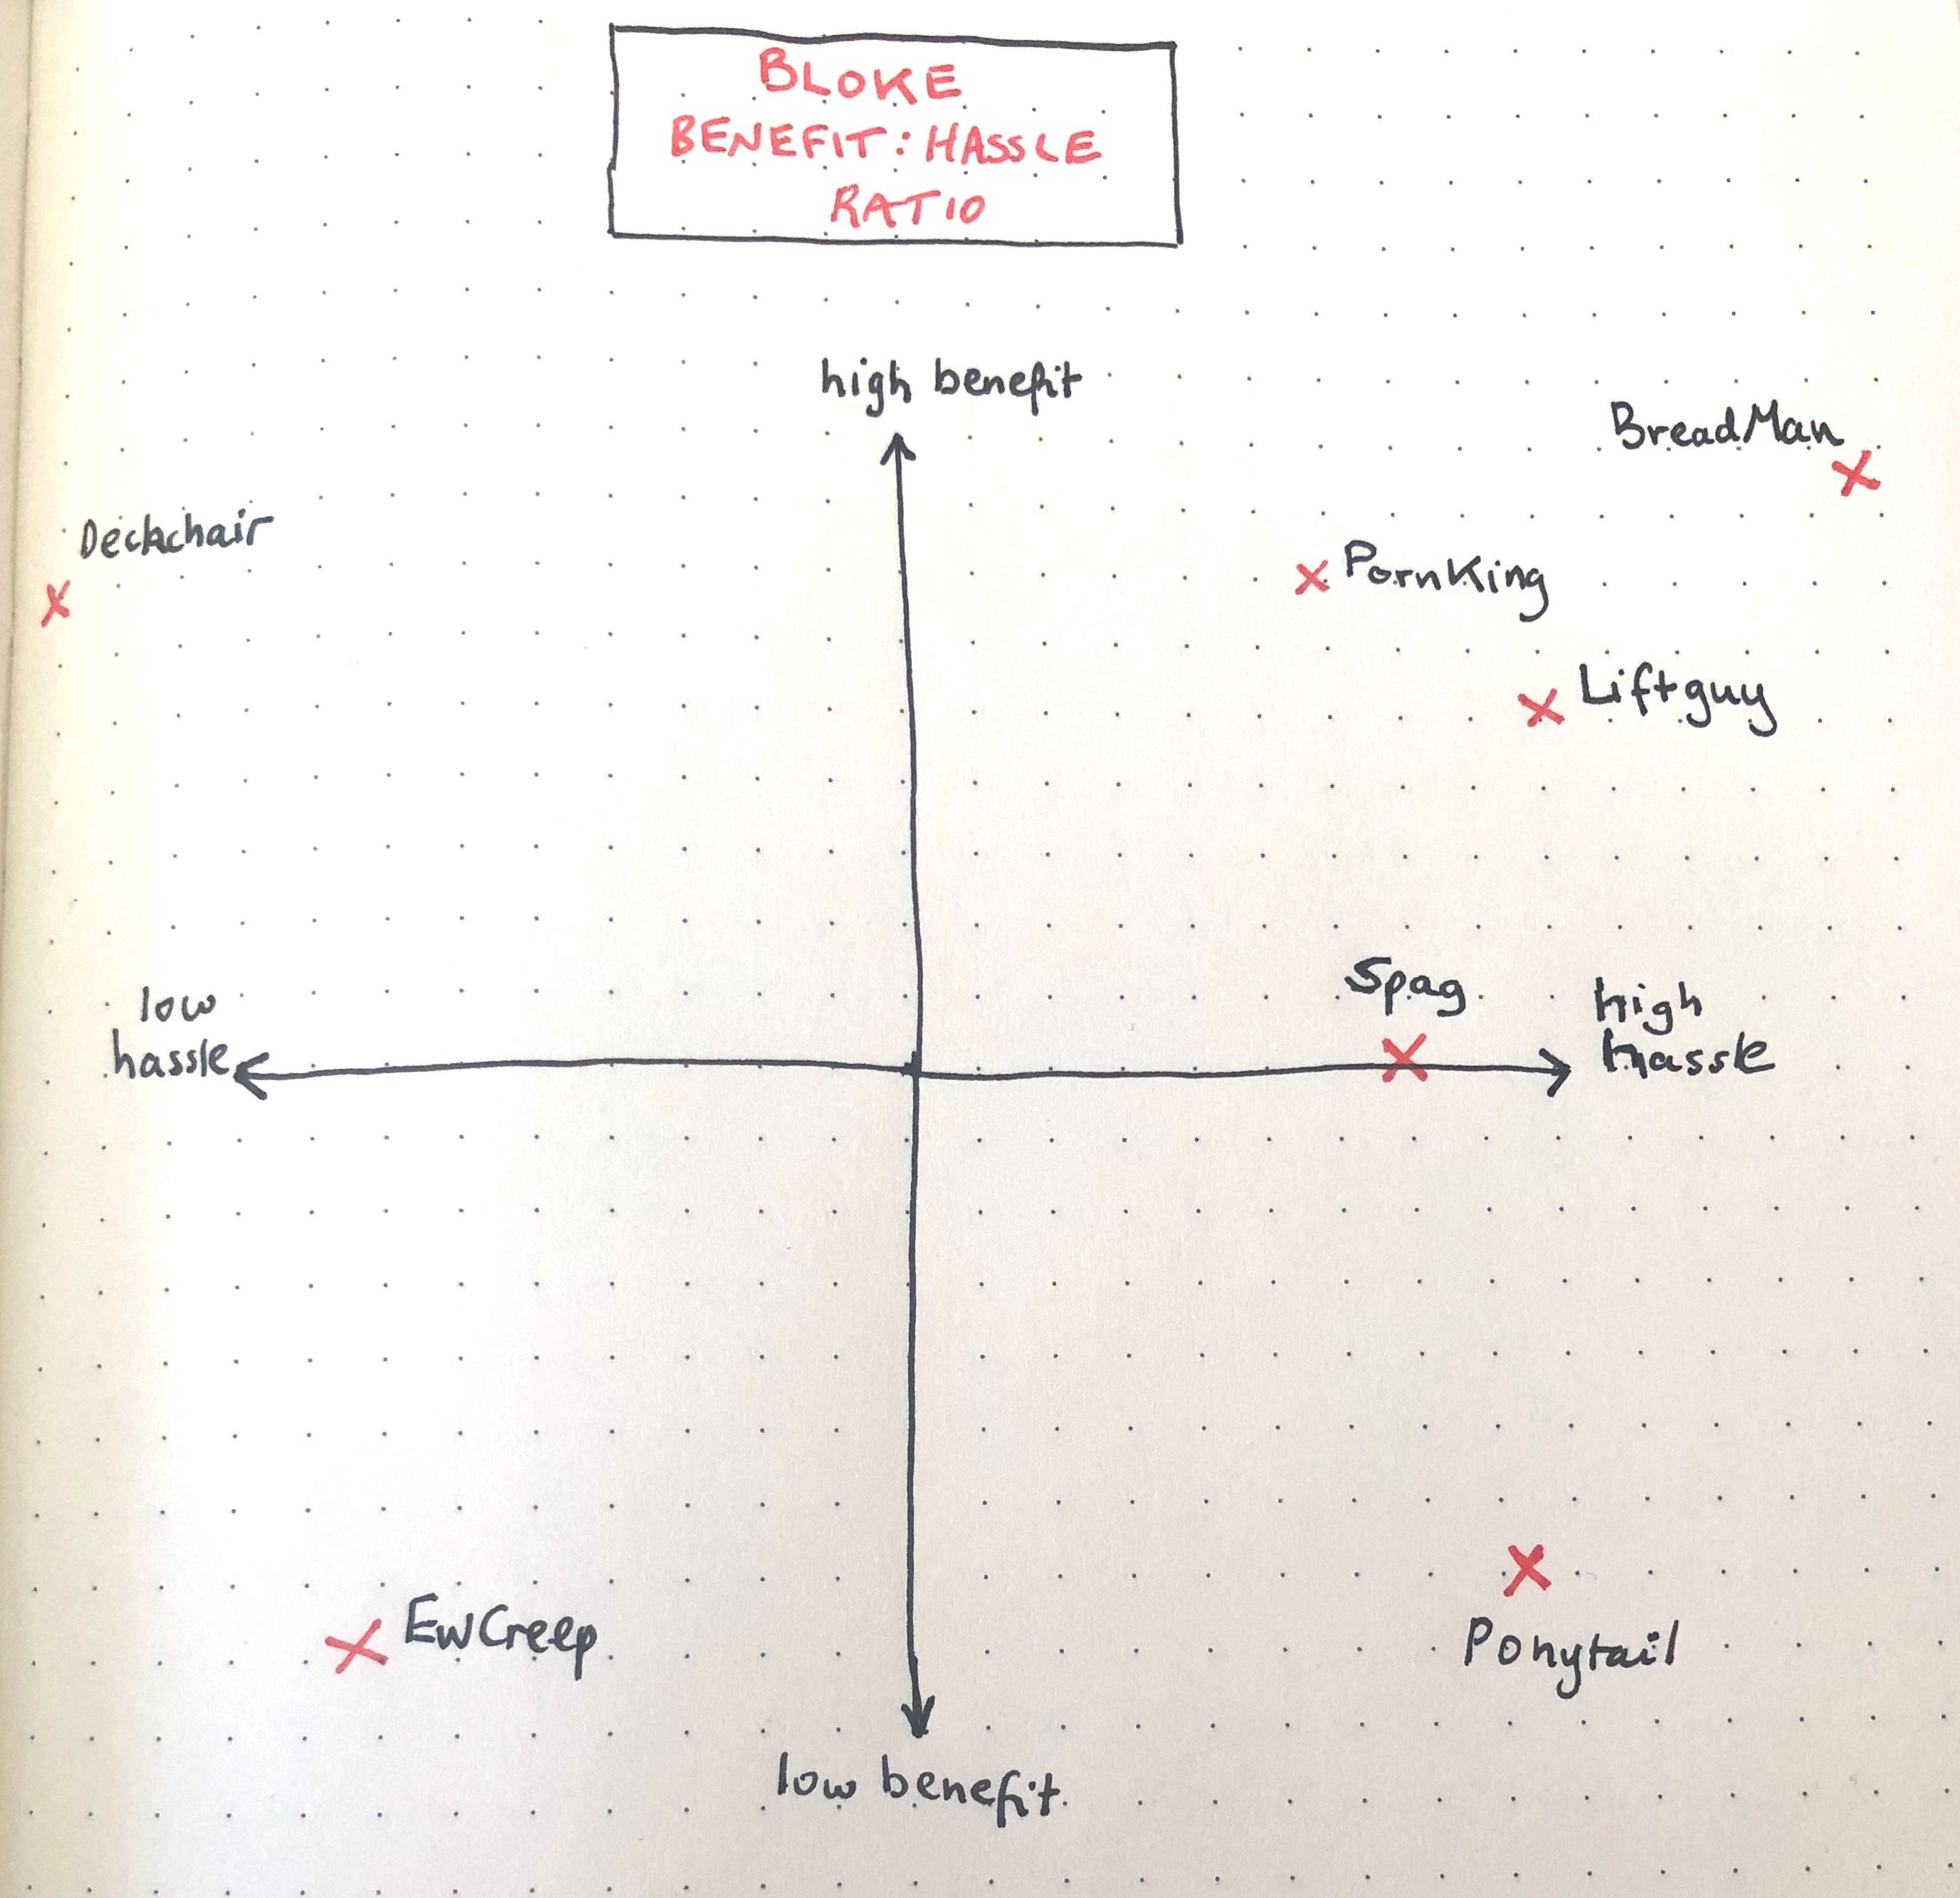 BLOKE
BENEFIT: HASSLE
RATIO
high benefit
BreadMan
Deckchair
PornKing
Liftguy
Spag
low
hassle
high
hassle
EwCreep
Ponytail
low benefit